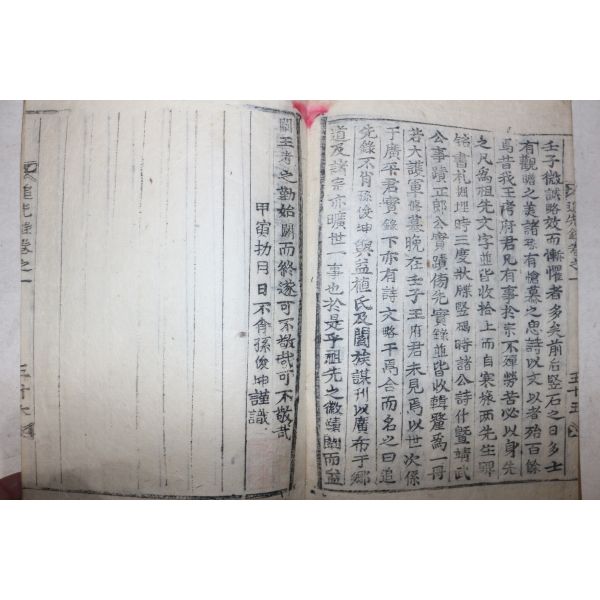 追先錄卷之一
五十五
壬子微誠略效而慚懼者多矣前后竪石之日多士
有觀瞻之美諸孫有愴慕之思詩以文以者殆百餘
焉昔我王考府君凡有事於宗不殫勞苦必以身先
之凡爲祖先文字並皆收拾上而自寒旅两先生卽
銘書札囬埋時三度狀牒竪碣時諸公詩什暨靖武
公事蹟工郞公實蹟傷先實錄並皆收輯釐爲一冊
若大護軍墓晚在壬子王府君未見焉以世次係
于廣平君實錄下亦有詩文略干焉合而名之曰追
先錄不肖孫俊坤與益植氏及闔族謀刊以廣布于鄕
道及諸宗亦曠世一事也於是乎祖先之徽蹟闡而益
闡王考之勤始闢而終遂可不敬哉可不敬哉
甲寅  月日不肖孫俊坤謹識
追先錄卷之一
五十六